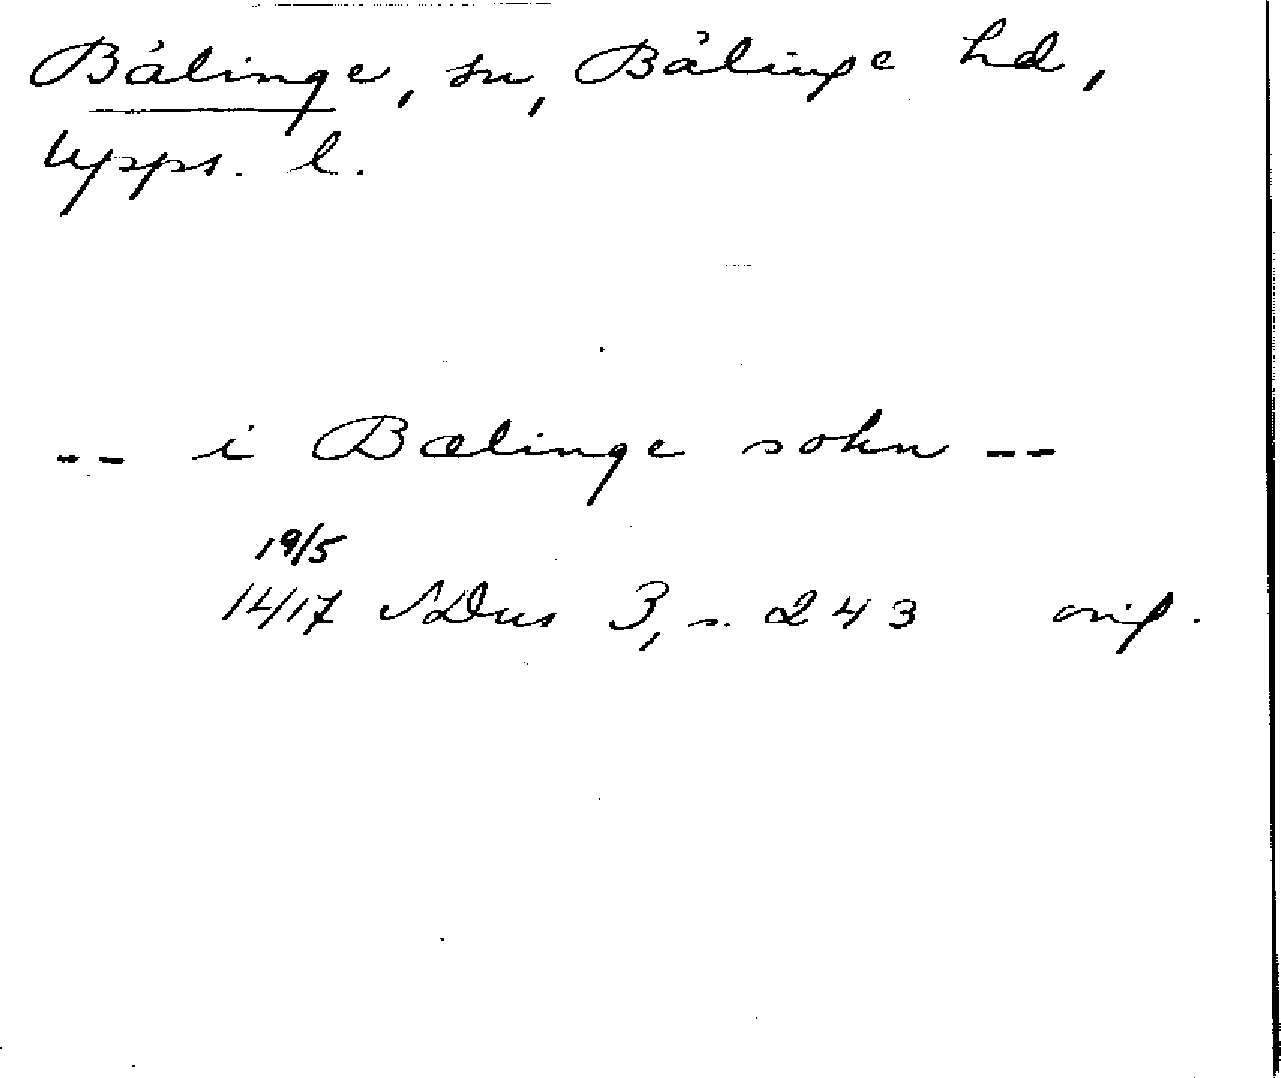 Bälinge, sn, Bälinge hd,
Upps. l.
-- i Bælinge sokn --
19/5
1417 SDns 3, s. 243 orig.